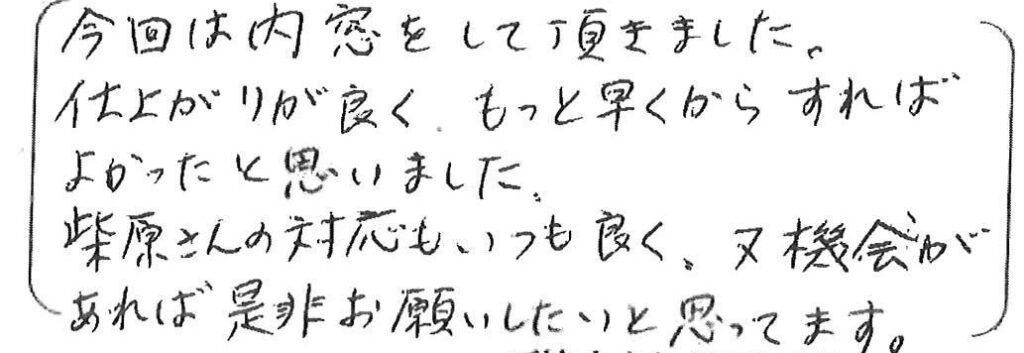 今回は内窓をして頂きました。
仕上がりが良く、もっと早くからすれば
よかったと思いました。
柴原さんの対応も、いつも良く、又機会が
あれば是非お願いしたいと思ってます。